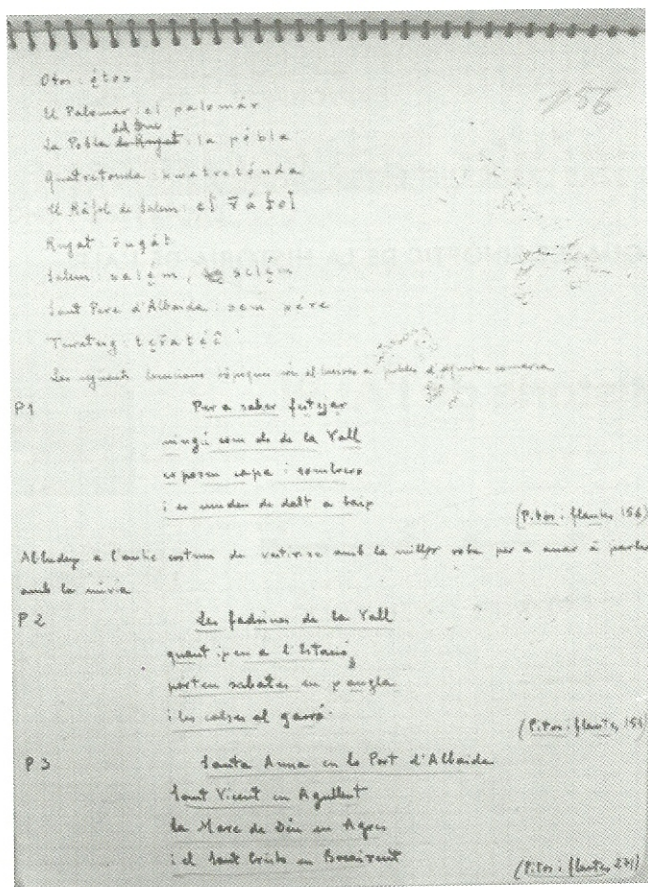 156
Otos: ótos
El Palomar: el palomár
del Duc
La Pobla de Rugat: la póbla
Quatretonda: kwatretónda
El Ràfol de Salem: el r̄áfol
Rugat: r̄ugát
Salem: salém, selém
Sant Pere d'Albaida: sem pére
Les següents al a pobles d'aquesta comarca
P1 Per a saber festejar
ningú com els de la Vall
es posen capa i sombrero
i es muden de dalt a baix
(Pitos i flautes, 156)
Al·ludeix a l'antic costum de vestir-se amb la millor roba per a anar a parlar
amb la núvia
P2 Les fadrines de la Vall
quant ixen a l'Estació,
porten sabates en xangla
i les calces al garró.
(Pitos i flautes, 156)
P3 Santa Anna en lo Port d'Albaida
Sant Vicent en Agullent
la Mare de Déu en Agres
i el Sant Cristo en Bocairent
(Pitos i flautes, 271)